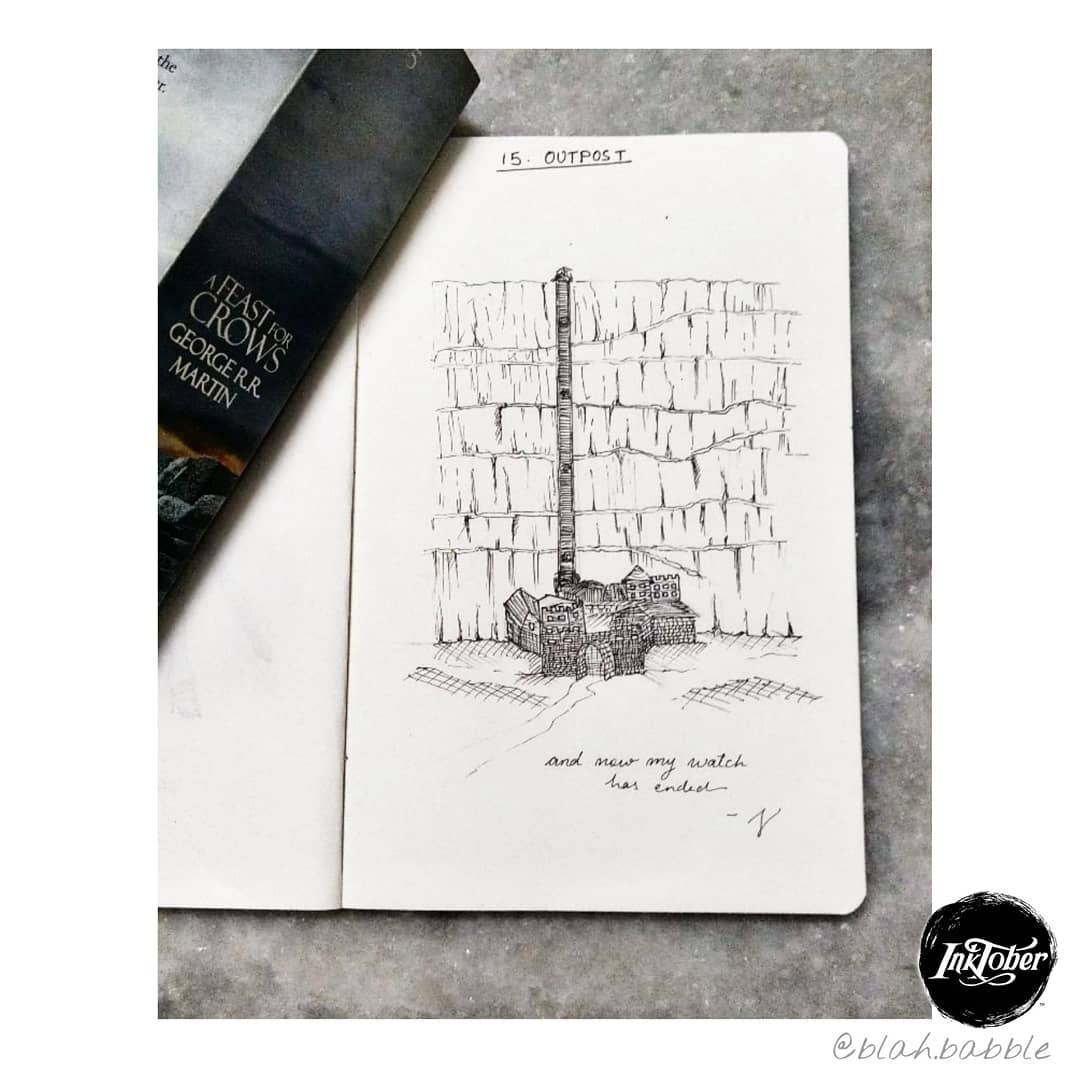 the
r.
5
A FEAST FOR
CROWS
GEORGE R.R.
MARTIN
15. OUTPOST
and now my watch
has ended
InkTober
@blah.babble